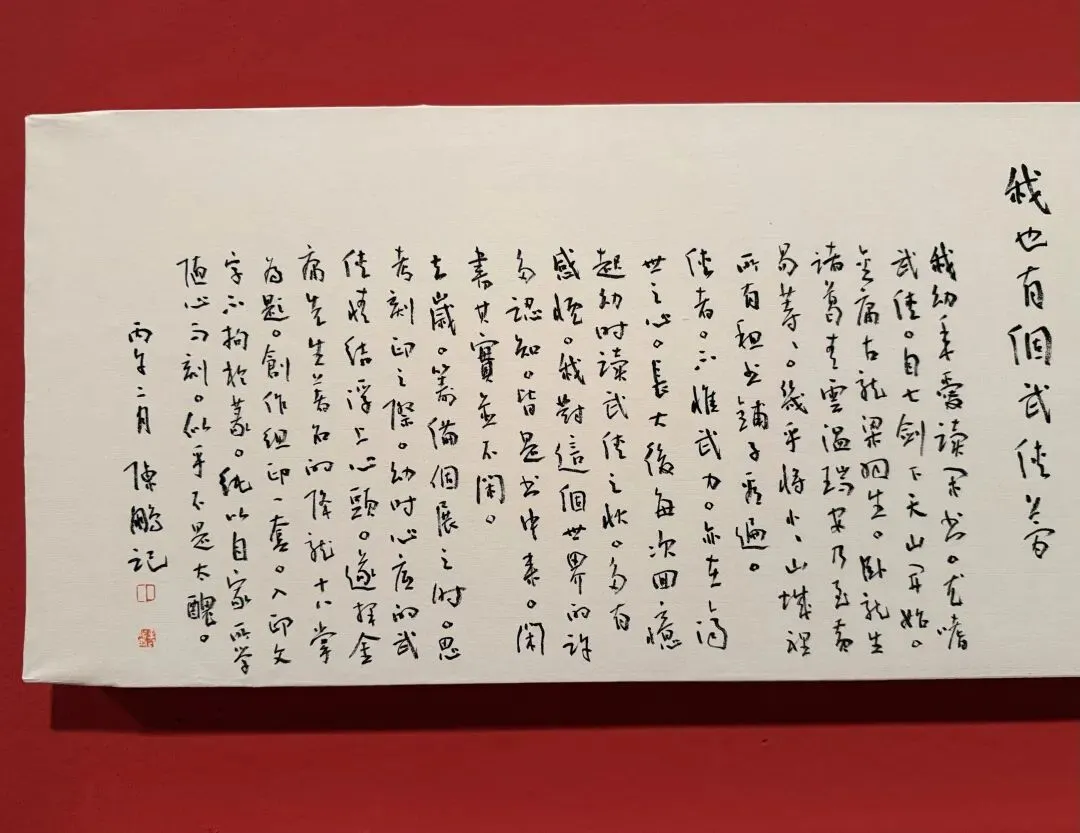 我也有個武俠梦
我幼年愛读闲书。尤嗜
武俠。自七剑下天山开始。
金庸古龙梁羽生。卧龙生
诸葛青雲温瑞安乃至黄
易等、。幾乎将小小山城裡
所有租书鋪子看遍。
俠者。不惟武力。亦在济
世之心。長大後每次回憶
起幼时读武俠之状。多有
感怀。我對這個世界的许
多認知。皆是书中来。闲
書其實並不闲。
去歲。籌備個展之时。思
考刻印之際。幼时心底的武
俠情结浮上心頭。遂择金
庸先生著名的降龙十八掌
为題。創作组印一套。入印文
字不拘於篆。纯以自家所学
随心而刻。似乎不是太醜。
丙午二月 陳鵬记